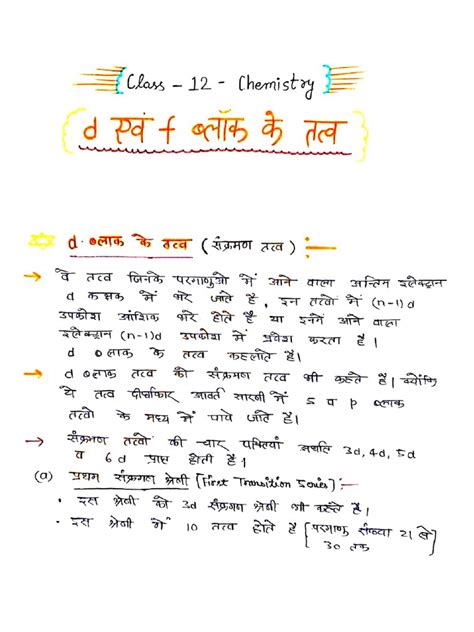 Class - 12 - Chemistry
d एवं f ब्लॉक के तत्व
d - ब्लाक के तत्व (संक्रमण तत्व) :-
→ वे तत्व जिनके परमाणुओ में आने वाला अन्तिम इलेक्ट्रान
d कक्षक में भरे जाते है, इन तत्वो में (n-1)d
उपकोश आंशिक भरे होते है या इनमें आने वाला
इलेक्ट्रान (n-1)d उपकोश में प्रवेश करता है।
d ब्लाक के तत्व कहलाते है।
→ d ब्लाक तत्व को संक्रमण तत्व भी कहते है। क्योंकि
ये तत्व दीर्घाकार आवर्त सारणी में s व p ब्लाक
तत्वो के मध्य में पाये जाते है।
→ संक्रमण तत्वों की चार पंक्तियां अर्थात 3d, 4d, 5d
व 6d प्राप्त होती है।
(a) प्रथम संक्रमण श्रेणी [First Transition Series] :-
• इस श्रेणी को 3d संक्रमण श्रेणी भी कहते है।
• इस श्रेणी में 10 तत्व होते है [परमाणु संख्या 21 से
30 तक